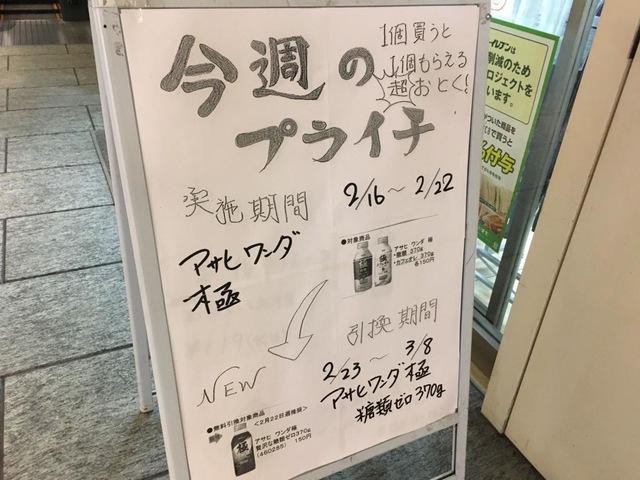 今週の
プライチ
1個買うと
1個もらえる
超おとく!
実施期間
2/16～2/22
アサヒワンダ
極
●対象商品
アサヒ ワンダ 極
・微糖 370g
・カフェオレ 370g
各150円
引換期間
2/23～3/8
アサヒワンダ極
糖類ゼロ370g
NEW
●無料引換対象商品
<2月22日週推奨>
アサヒ ワンダ極
贅沢な糖類ゼロ370g
(460285) 150円
イレブンは
削減のため
ロジェクトを
います。
ついた商品を
で買うと
付与